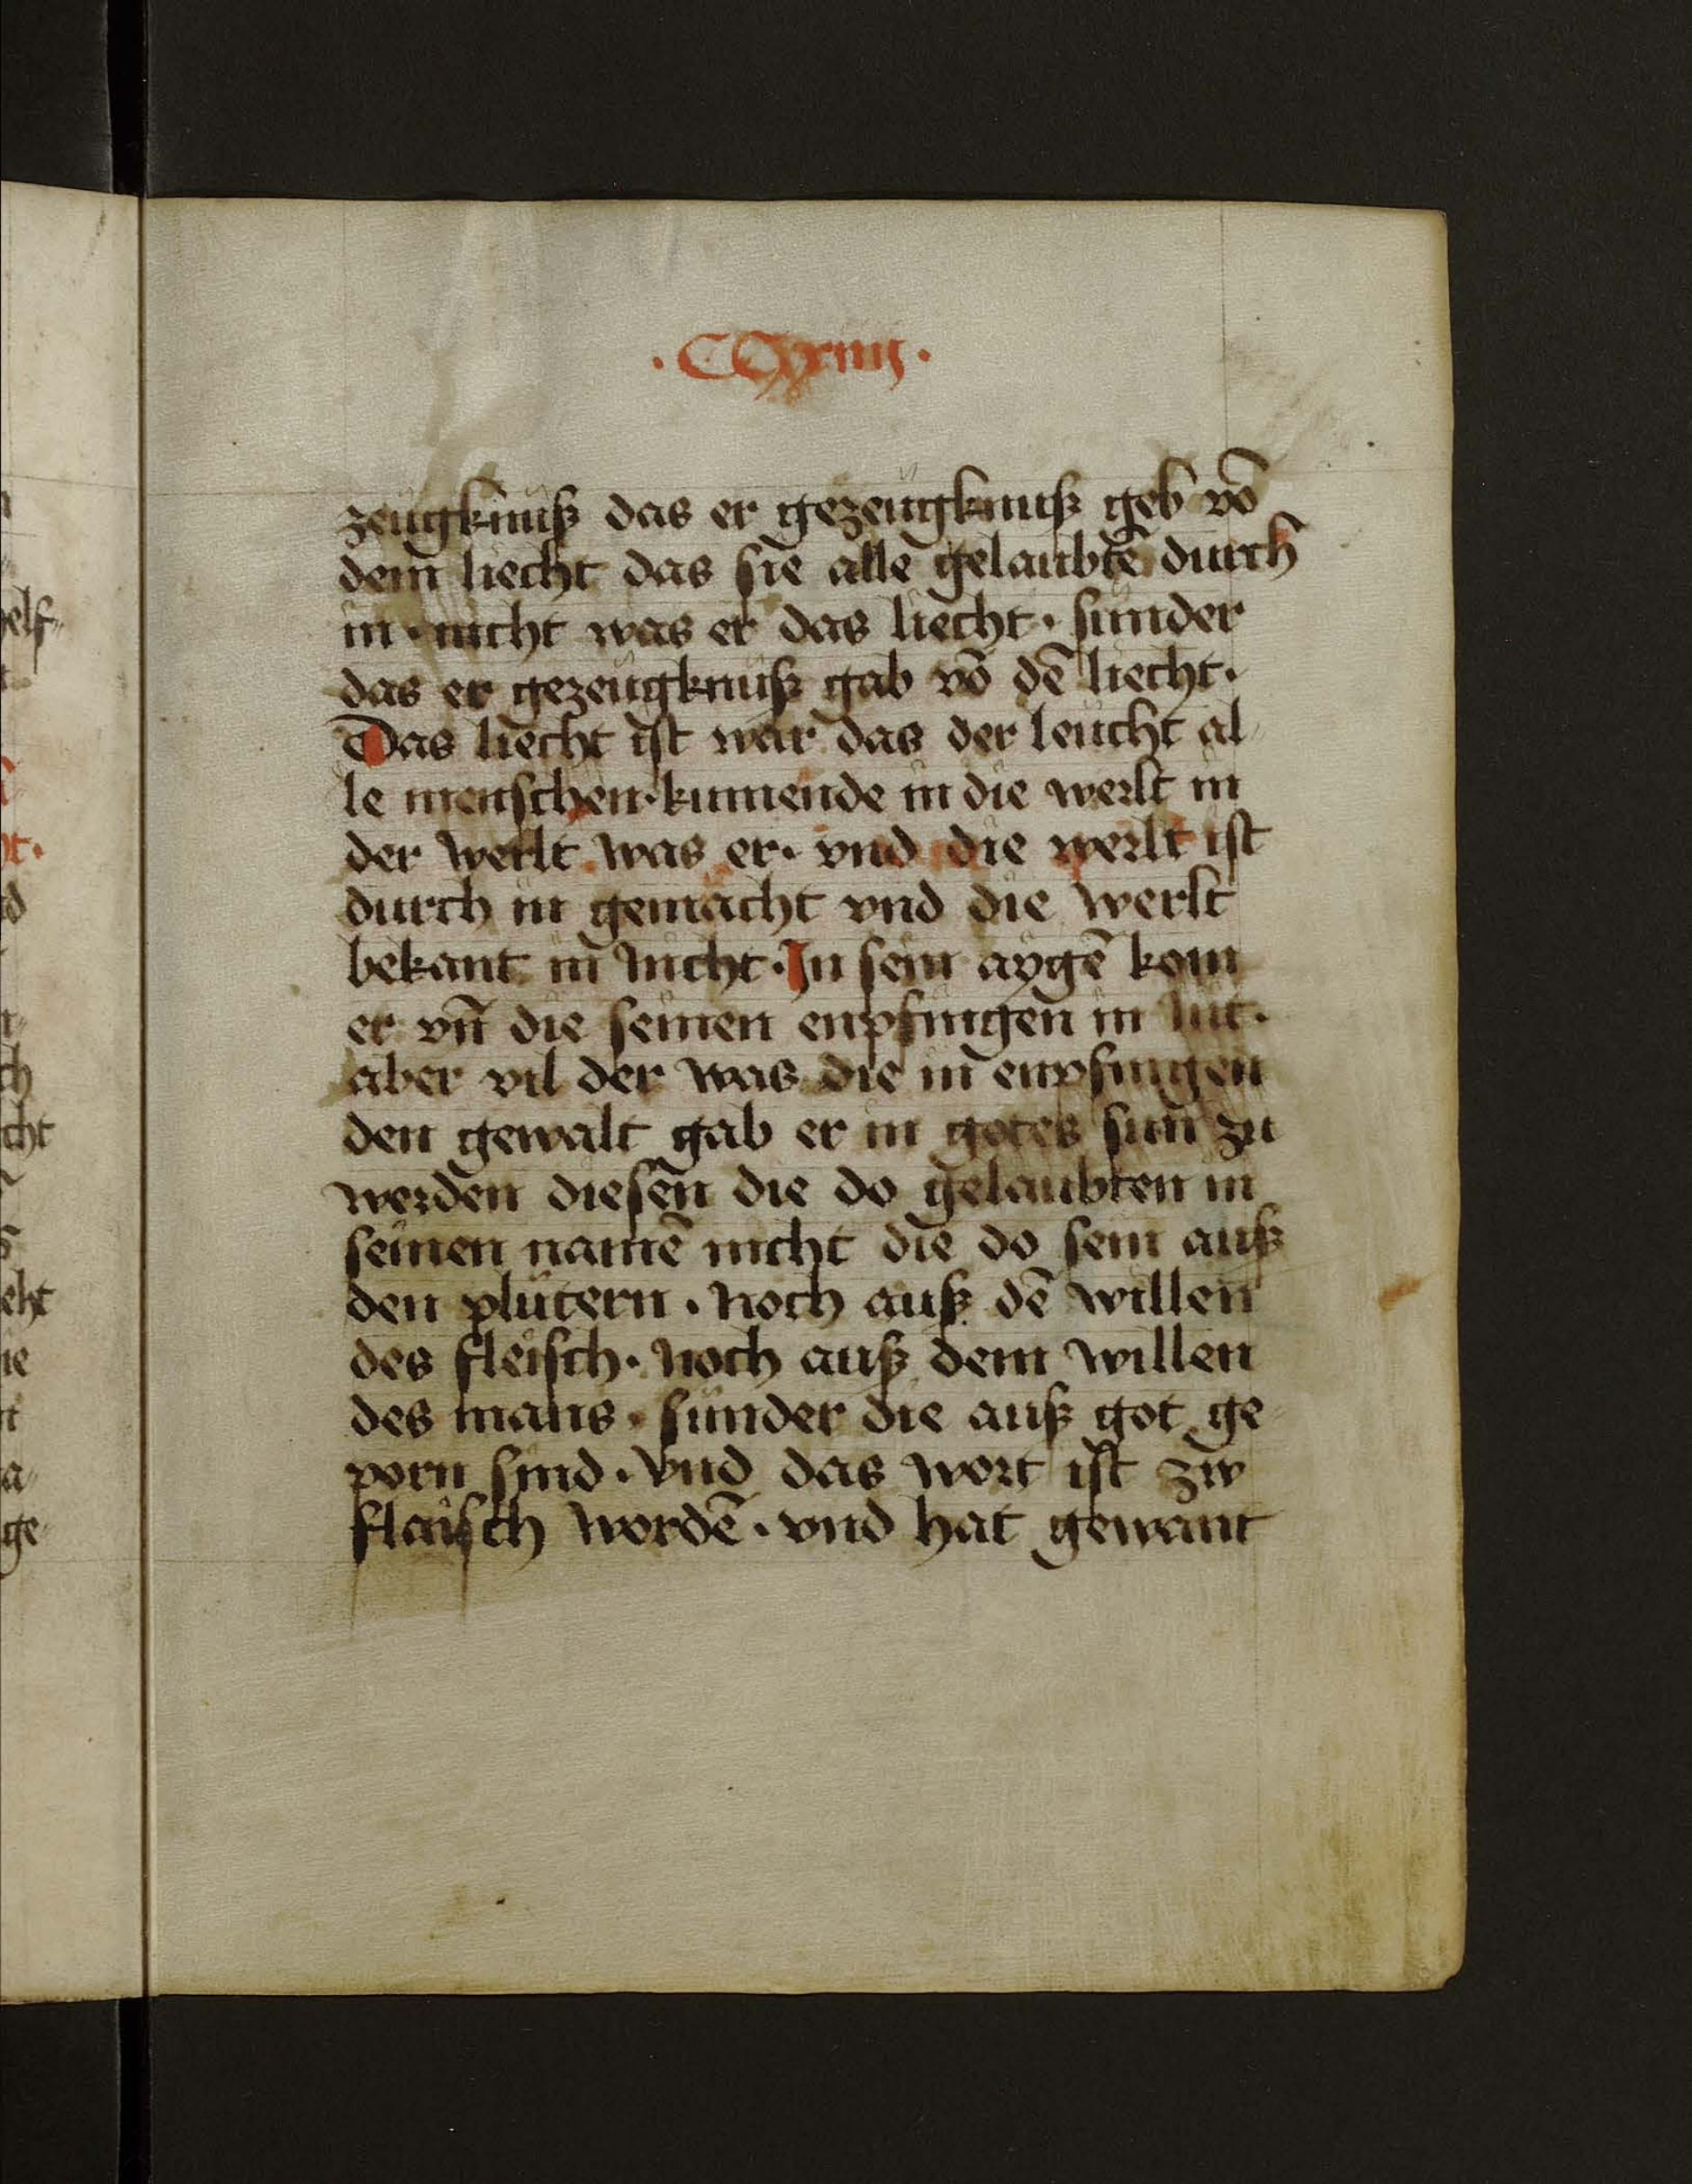 ·CCxxiiij·
zeugknuß das er gezeugknuß geb vō
dem liecht das sie alle gelaubtē durch
in · nicht was er das liecht · sunder
das er gezeugknuß gab vō dē liecht ·
Das liecht ist war das der leucht al
le menschen · kumende in die werlt in
der werlt was er · vnd die werlt ist
durch in gemacht vnd die werlt
bekant in nicht · In sein aygē kom
er vn̄ die seinen enpfingen in nit ·
aber vil der was die in enpfingen
den gewalt gab er in gotes sun zu
werden diesen die do gelaubten in
seinen namē nicht die do sein auß
den plutern · noch auß dē willen
des fleisch · noch auß dem willen
des mans · sunder die auß got ge
porn sind · vnd das wort ist zw
flaisch wordē · vnd hat gewant